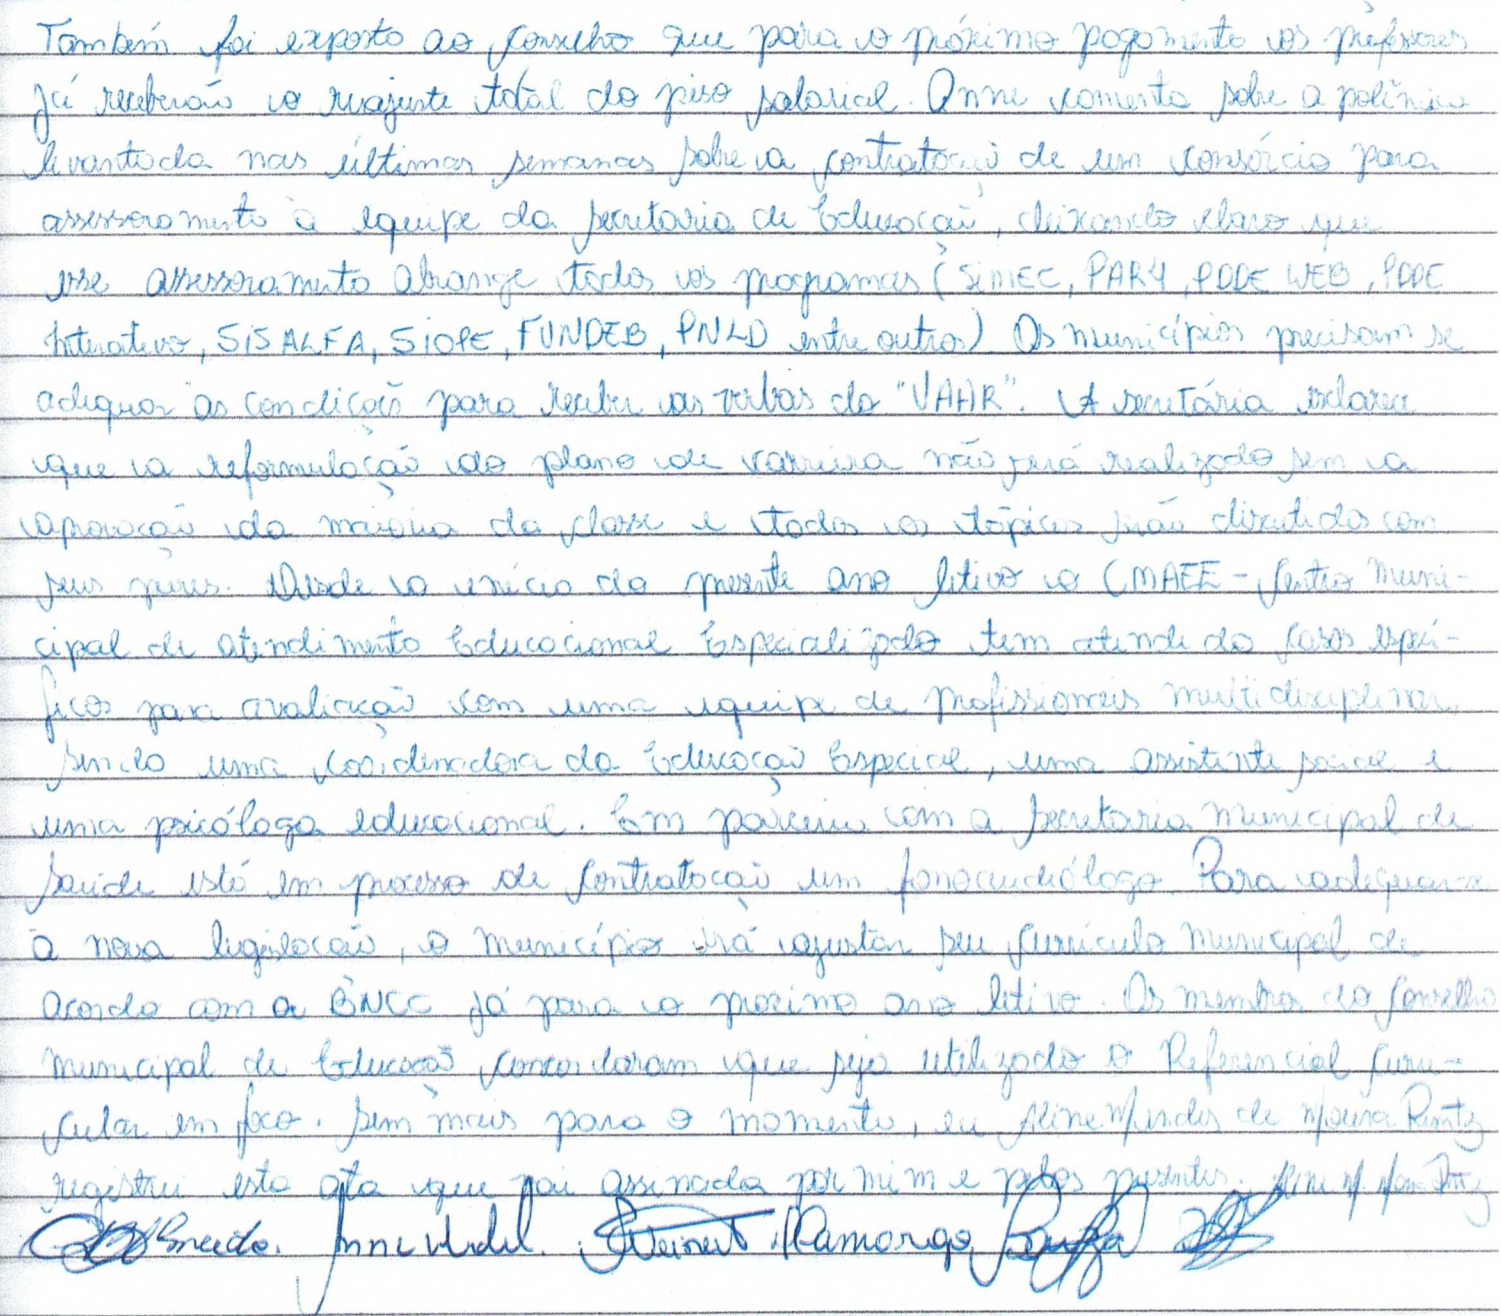 Também foi exposto ao Conselho que para o próximo pagamento os professores
já receberão o reajuste total do piso salarial. Anne comenta sobre a polêmica
levantada nas últimas semanas sobre a contratação de um consórcio para
assessoramento à equipe da Secretaria de Educação, deixando claro que
esse assessoramento abrange todos os programas (SIMEC, PAR4, PDDE WEB, PDDE
Interativo, SISALFA, SIOPE, FUNDEB, PNLD entre outros) Os municípios precisam se
adequar às condições para receber as verbas do "VAAR". A secretária esclarece
que a reformulação do plano de carreira não será realizado sem a
aprovação da maioria da classe e todos os tópicos serão discutidos com
seus pares. Desde o início do presente ano letivo o CMAEE - Centro Muni-
cipal de atendimento Educacional Especializado tem atendido casos especí-
ficos para avaliação com uma equipe de profissionais multidisciplinar,
sendo uma coordenadora da Educação Especial, uma assistente social e
uma psicóloga educacional. Em parceria com a Secretaria Municipal de
Saúde está em processo de contratação um fonoaudiólogo. Para adequar-se
à nova legislação, o município irá ajustar seu Currículo Municipal de
acordo com a BNCC já para o próximo ano letivo. Os membros do Conselho
Municipal de Educação concordaram que seja utilizado o Referencial Curri-
cular em foco. Sem mais para o momento, eu Aline Mendes de Moura
registrei esta ata que foi assinada por mim e pelos presentes. Aline M. Moura